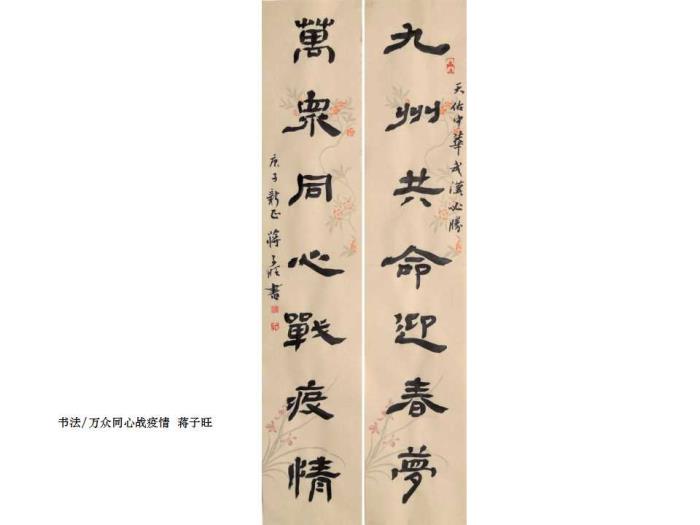 九州共命迎春夢
天佑中華武漢必勝
萬眾同心戰疫情
庚子新正蔣子旺書
书法/万众同心战疫情 蒋子旺